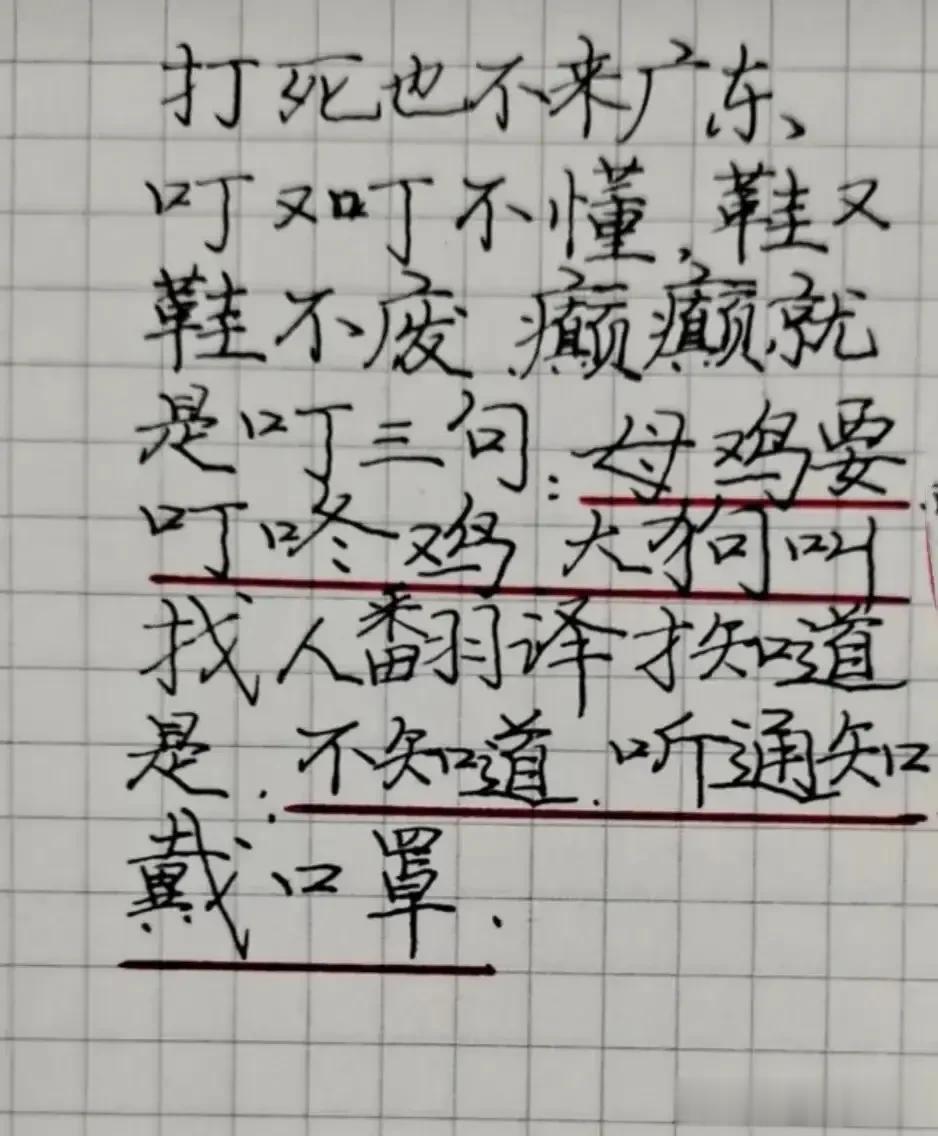 打死也不来广东、
叮又叮不懂,鞋又
鞋不废.癫癫就
是叮三句:母鸡要
叮咚鸡大狗叫
找人翻译才知道
是:不知道.听通知
戴口罩.